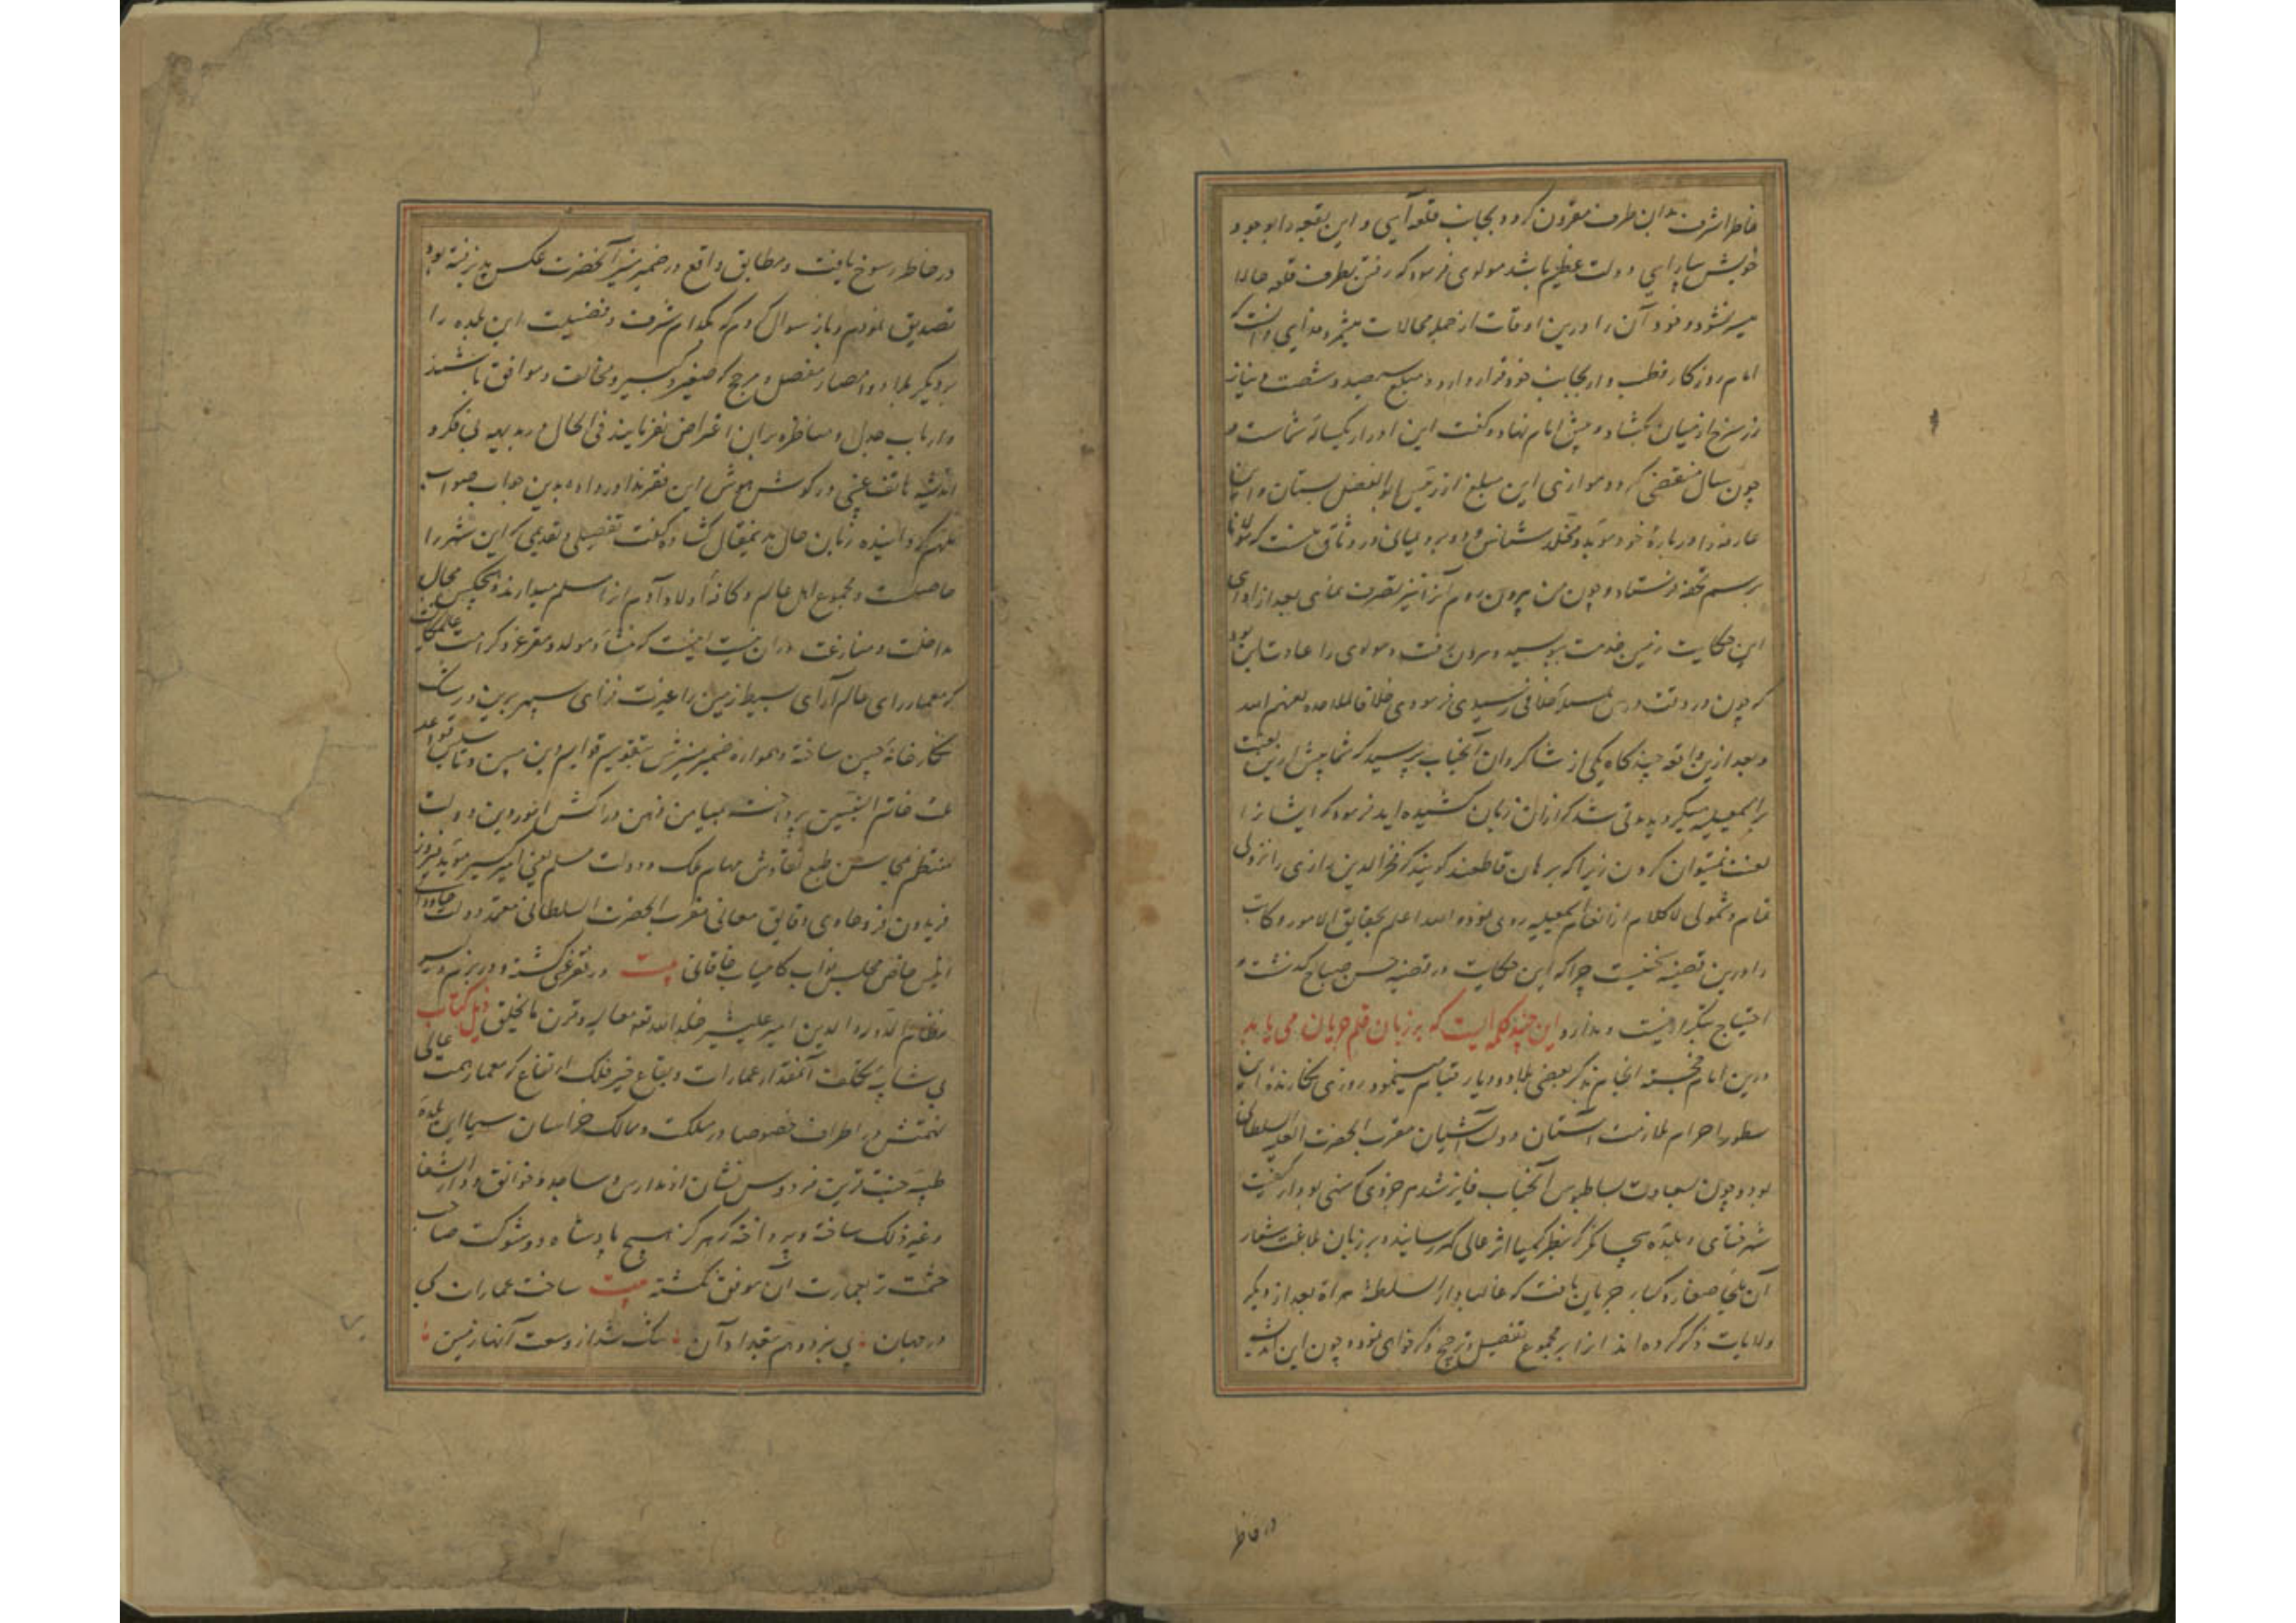 خاطر اشرف بدان طرف مقرون کردد بجانب قلعه آیی و این بقعه را بوجود
خویش بیارایی دولت عظیم باشد مولوی فرمود که رفتن بطرف قلعه حالا
میسر نشود و خود آن را درین اوقات از جمله محالات میشمرد فدایی دانست که
امام روزکار قطب وار بجانب خود قرار دارد مبلغ سیصد و شصت دینار
زر سرخ از میان بکشاد و پیش امام نهاد و کفت این ادرار یکساله شماست و
چون سال منقضی کردد موازی این مبلغ از رئیس ابوالفضل بستان و این
عارفه را در باره خود مؤبد و مخلد شناس و دو برد یمانی در وثاق هست که مولانا
برسم تحفه فرستاده چون من بیرون روم آنرا نیز تصرف نمای بعد از ادای
این حکایت زمین خدمت ببوسید و بیرون رفت و مولوی را عادت این بود
که چون در وقت درس بمسئله خلافی رسیدی فرمودی خلافا للملاحده لعنهم الله
و بعد ازین واقعه چند کاه یکی از شاکردان آنجناب پرسید که شما پیش ازین لعنت
بر اسمعیلیه میکردید مدتی شد که از ان زبان کشیده اید فرمود که ایشان را
لعنت نمیتوان کردن زیرا که برهان قاطعند کویند که فخر الدین رازی را نزولی
تمام و شمولی لا کلام از انعام اسمعیلیه روی نموده الله اعلم بحقایق الامور و کاتب
را درین قضیه بحثیست چرا که این حکایت در قضیه حسن صباح کذشت و
احتیاج بتکرار نیست و ندارد این چند کلمه ایست که بر زبان قلم جریان می یابد
درین ایام خجسته انجام بذکر بعضی بلاد و دیار قیام مینمود روزی نکارنده این
سطور احرام ملازمت آستان دولت آشیان مقرب الحضرت العلیه السلطانی
بود و چون بسعادت بساط بوس آنجناب فایز شدم جزوی که مبنی بود از کیفیت
شهر ختای و بلده بجانگر که بنظر کیمیا اثر عالی کهر رسانیده بر زبان بلاغت شعار
آن ملجأ صغار و کبار جریان یافت که غالبا دار السلطنه هراة بعد از دیکر
ولایات ذکر کرده اند از ابر مجموع تفضیل و ترجیح ذکر خواهی نمود و چون این اندیشه
در خاطر
در خاطر رسوخ یافت و مطابق واقع در ضمیر منیر آنحضرت عکس پذیرفته بود
تصدیق نمودم و باز سوال کردم که بکدام شرف و فضیلت این بلده را
بر دیکر بلاد و امصار مفضل و مرجح که صغیر و کبیر و مخالف و موافق باشند
و ارباب جدل و مناظره بران اعتراض نفرمایند فی الحال در بدیهه بی فکر و
اندیشه هاتف غیبی در کوش هوش این فقیر ندا در داد و بدین جواب صواب
ملهم کردانیده زبان حال بدینمقال کشاده کفت تفضیلی و تقدیمی که این شهر را
حاصلست و مجموع اهل عالم و کافه اولاد آدم آنرا مسلم میدارند و هیچکس مجال
مداخلت و منازعت در ان نیست اینست که منشأ و مولد و مقر عز و کرامت عالیجنابیست
که معمار رای عالم آرای بسیط زمین را غیرت فزای سپهر برین و رشک
نکارخانه چین ساخته و همواره ضمیر منیرش بتقویم قوایم دین مبین و تأسیس قواعد
ملت خاتم النبیین پرداخته بمیامن ذهن دراکش امور دین و دولت
منتظم بمحاسن طبع نقادش مهام ملک و دولت مسلم یعنی امیر کبیر مؤید فیروز
فریدون فر و حاوی دقایق معانی مقرب الحضرت السلطانی معتمد دولت جاودانی
انیس خاص مجلس نواب کامیاب خاقانی بیت در تفرغ کشته و در بزم و سر
نظام الدوله و الدین امیر علیشیر خلد الله تعالی معالیه و قرن بالخلیق ذیل کتاب
بی شایبه تکلف آنمقدار عمارات و بقاع خیر فلک ارتفاع که معمار همت عالی
نهمتش در اطراف خصوصا در مملکت و ممالک خراسان سیما این بلده
طیبه جنت تزیین فردوس نشان از مدارس و مساجد و خوانق و دار الشفا
و غیر ذلک ساخته و پرداخته که هرکز هیچ پادشاه ذو شوکت صاحب
حشمت بر تعمارت آن موفق نکشته بیت ساخت عمارات کی
در جهان پی نبرد وهم بتعداد آن تنک شد از وسعت آنها زمین